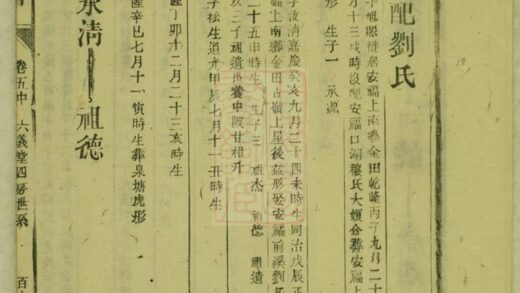 配劉氏
字旭眼徙居安福上南鄉金田乾隆丙子九月二十
月十三戌時沒配安福口湖穰氏大嫂合葬安福上
形 生子一 承源
字汝清嘉慶癸亥九月二十四未時生同治戊辰正
上南鄉金田古嶺上屋後盆形娶安福前溪劉
二十五申時生 生子三 祖杰 祖德
亥二子 遺出養中陂甘相升
子松生道光甲辰七月十一丑時生
丁卯十二月二十三亥時生
辛巳七月十一寅時生葬泉塘虎形
承清 祖德
卷五中 六義堂四房世系 百